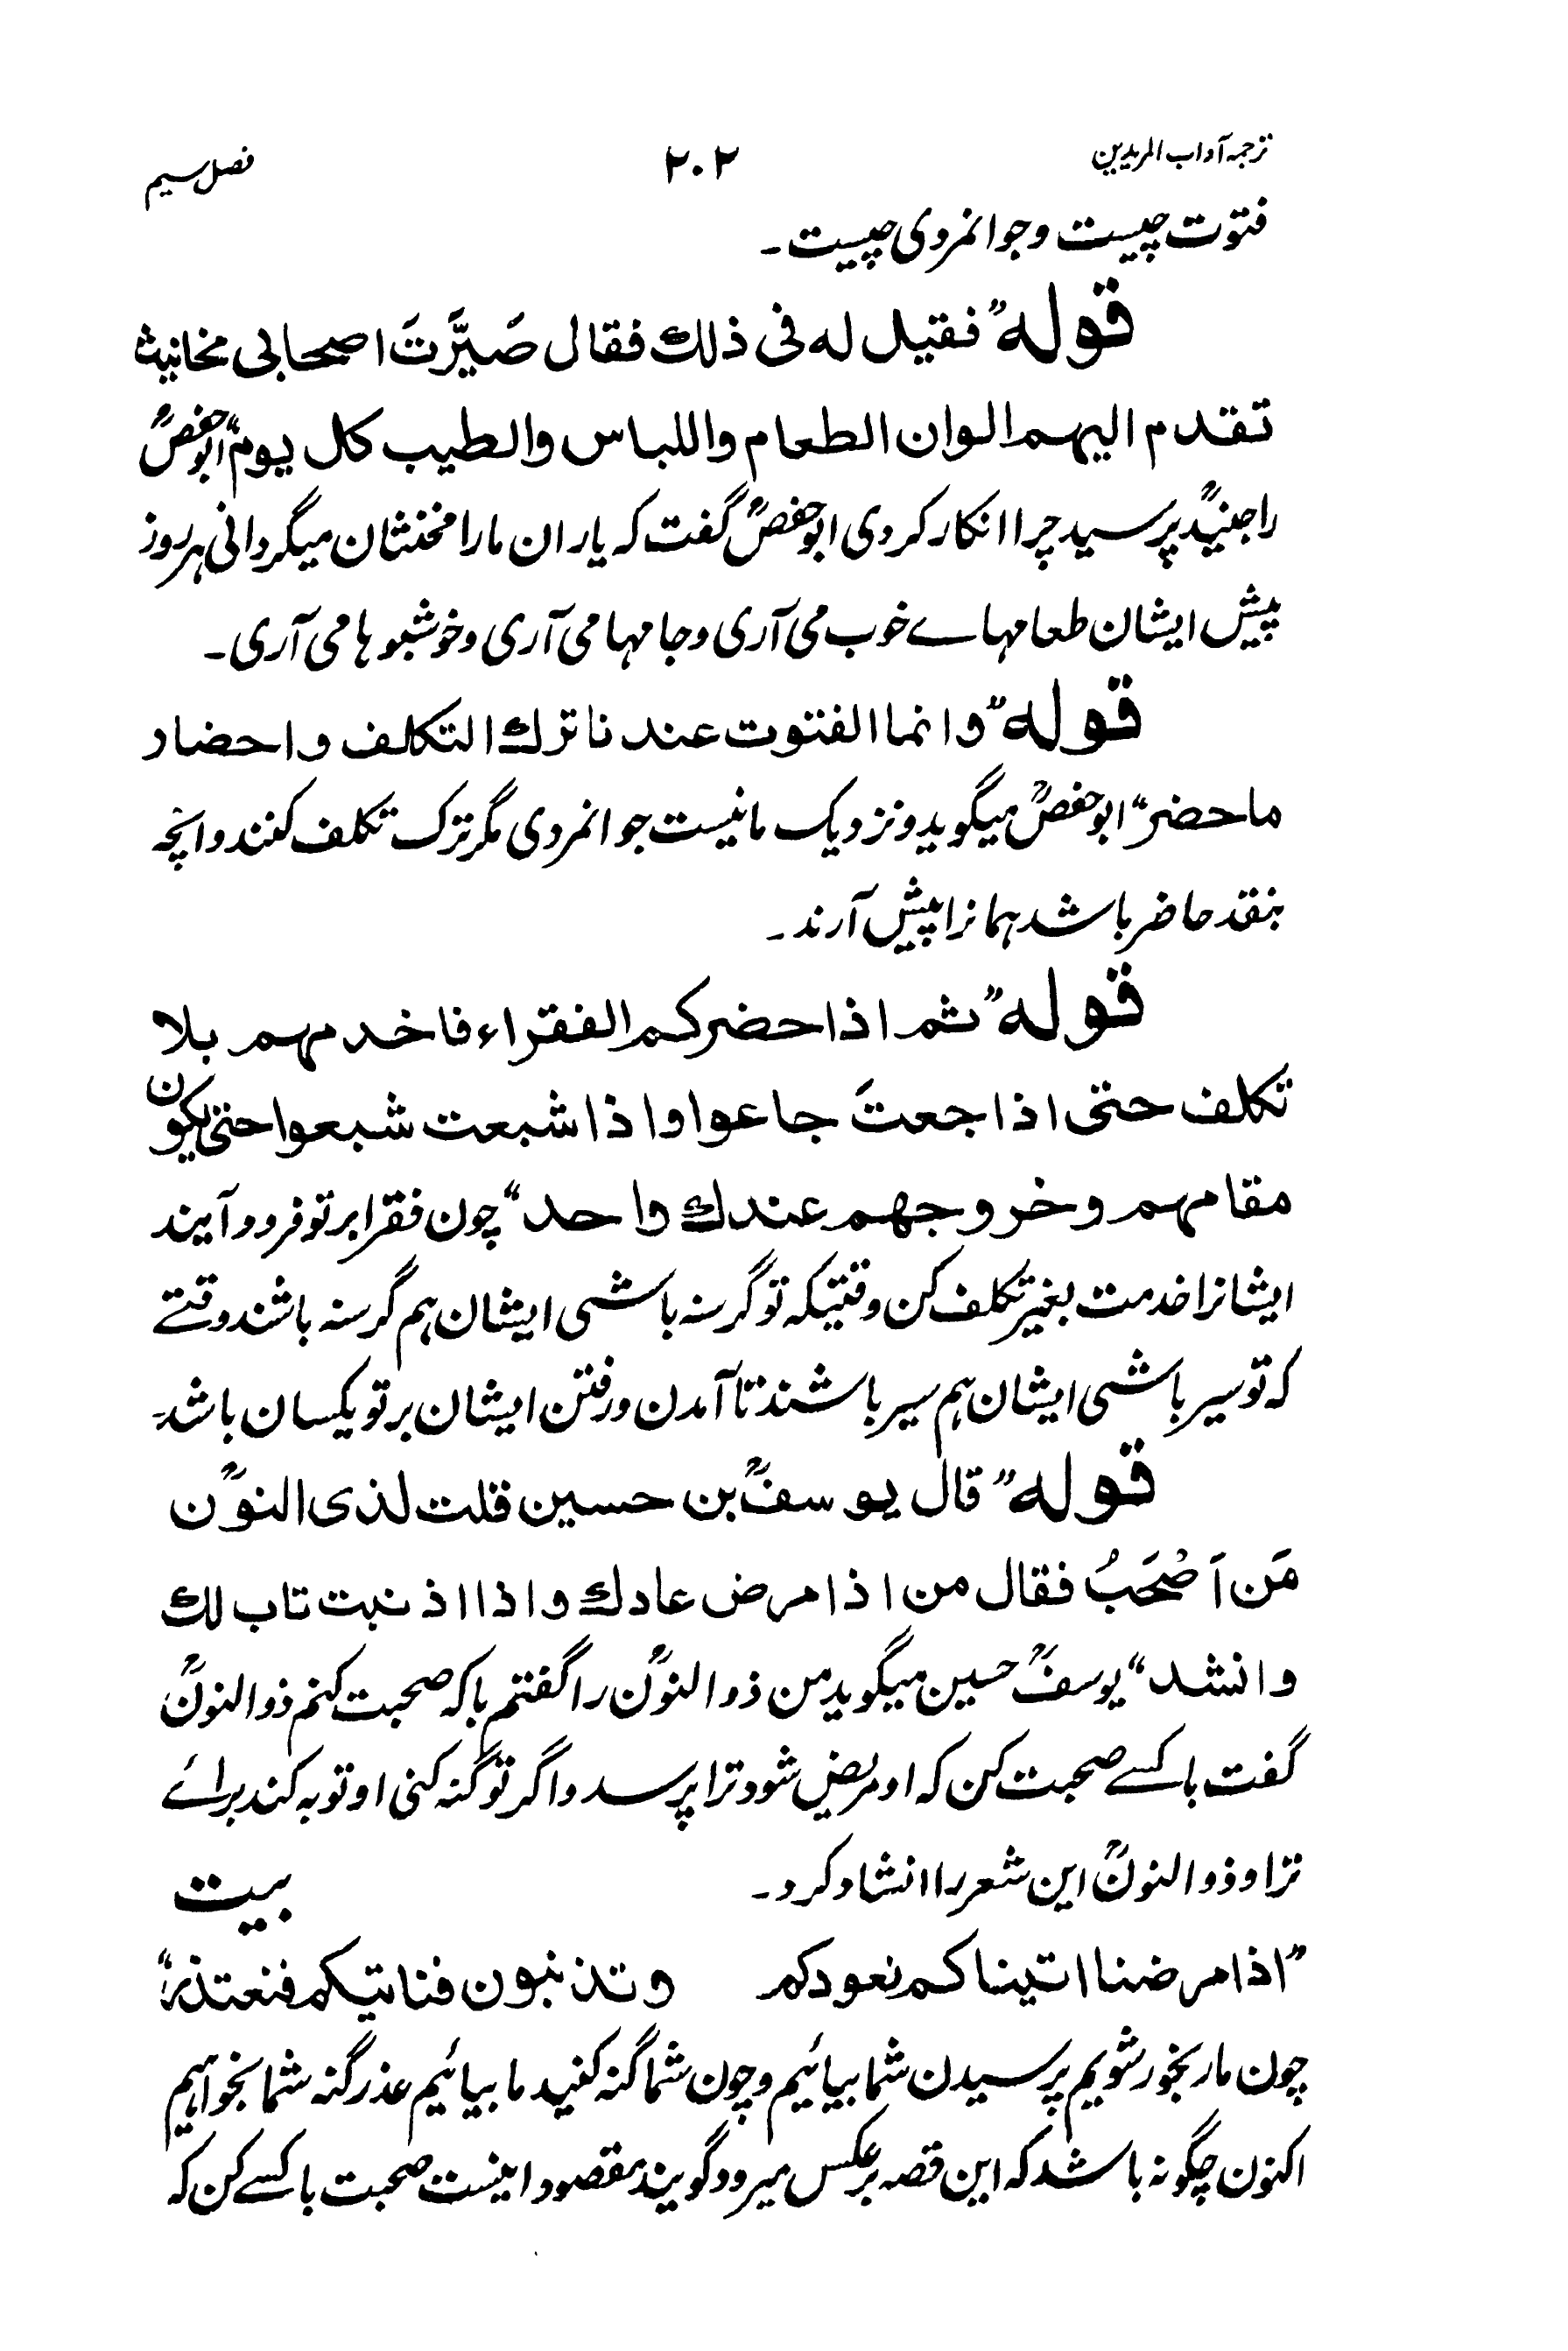 ترجمہ آداب المریدین ۲۰۲ فصل سیم
فتوت چیست و جوانمردی چیست۔
قوله "فقيل له فى ذلك فقال صَيَّرَتَ اصحابى مخانيث
تقدم اليهم الوان الطعام واللباس والطيب كل يوم" ابو حفصؒ
را جنیدؒ پرسید چرا انکار کردی ابو حفصؒ گفت کہ یاران مارا مخنثان میگردانی ہر روز
پیش ایشان طعامہاے خوب می آری و جامہا می آری و خوشبوہا می آری۔
قوله "وانما الفتوت عندنا ترك التكلف واحضار
ماحضر" ابو حفصؒ میگوید و نزدیک ما نیست جوانمردی مگر ترک تکلف کنند و انچہ
بنقد حاضر باشد ہمانرا پیش آرند۔
قوله "ثم اذا حضركم الفقراء فاخدمهم بلا
تكلف حتى اذا جعتَ جاعوا واذا شبعت شبعوا حتى يكون
مقامهم وخروجهم عندك واحد" چون فقرا بر تو فرود آیند
ایشانرا خدمت بغیر تکلف کن وقتیکہ تو گرسنہ باشی ایشان ہم گرسنہ باشند وقتے
کہ تو سیر باشی ایشان ہم سیر باشند تا آمدن و رفتن ایشان بر تو یکسان باشد۔
قوله "قال يوسفؒ بن حسين قلت لذى النونؒ
مَن اَصْحَبُ فقال من اذا مرض عادك واذا اذنبت تاب لك
وانشد" یوسفؒ حسین میگوید من ذوالنونؒ را گفتم باکہ صحبت کنم ذوالنونؒ
گفت باکسے صحبت کن کہ او مریض شود ترا پرسد و اگر تو گنہ کنی او توبہ کند برائے
ترا و ذوالنونؒ این شعر را انشاد کرد۔ بیت
"اذا مرضنا اتيناكم نعودكم وتذنبون فناتيكم فنعتذر"
چون ما رنجور شویم پرسیدن شما بیائیم و چون شما گنہ کنید ما بیائیم عذر گنہ شما بخواہیم
اکنون چگونہ باشد کہ این قصہ برعکس میرود گویند مقصود اینست صحبت باکسے کن کہ